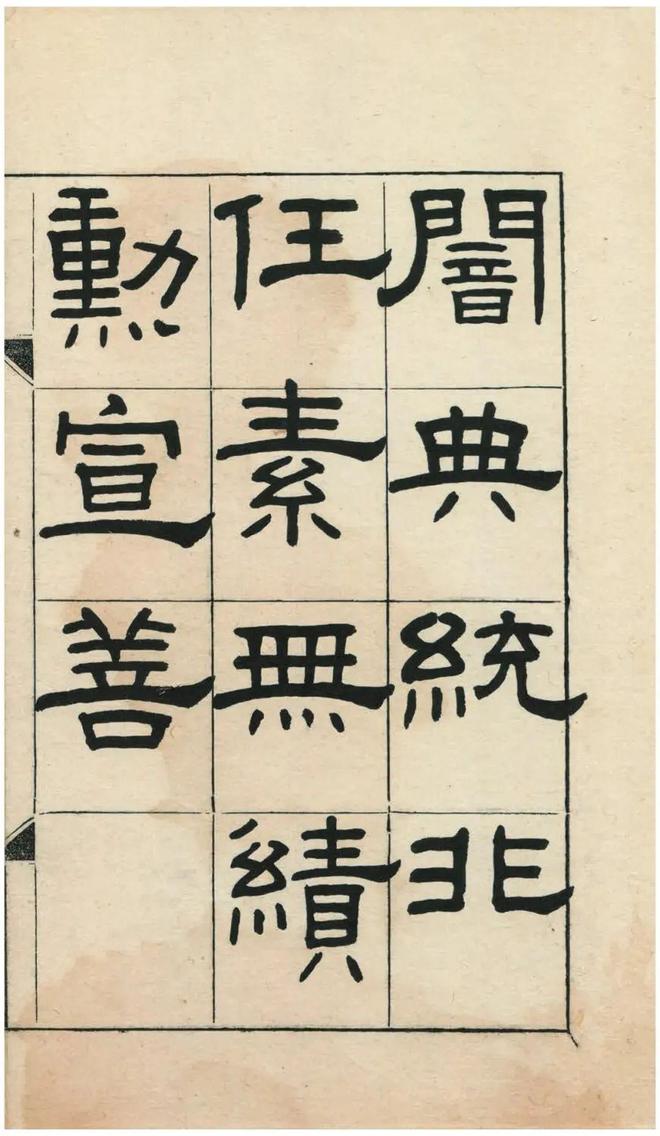 闇典統非
任素無績
勳宣善